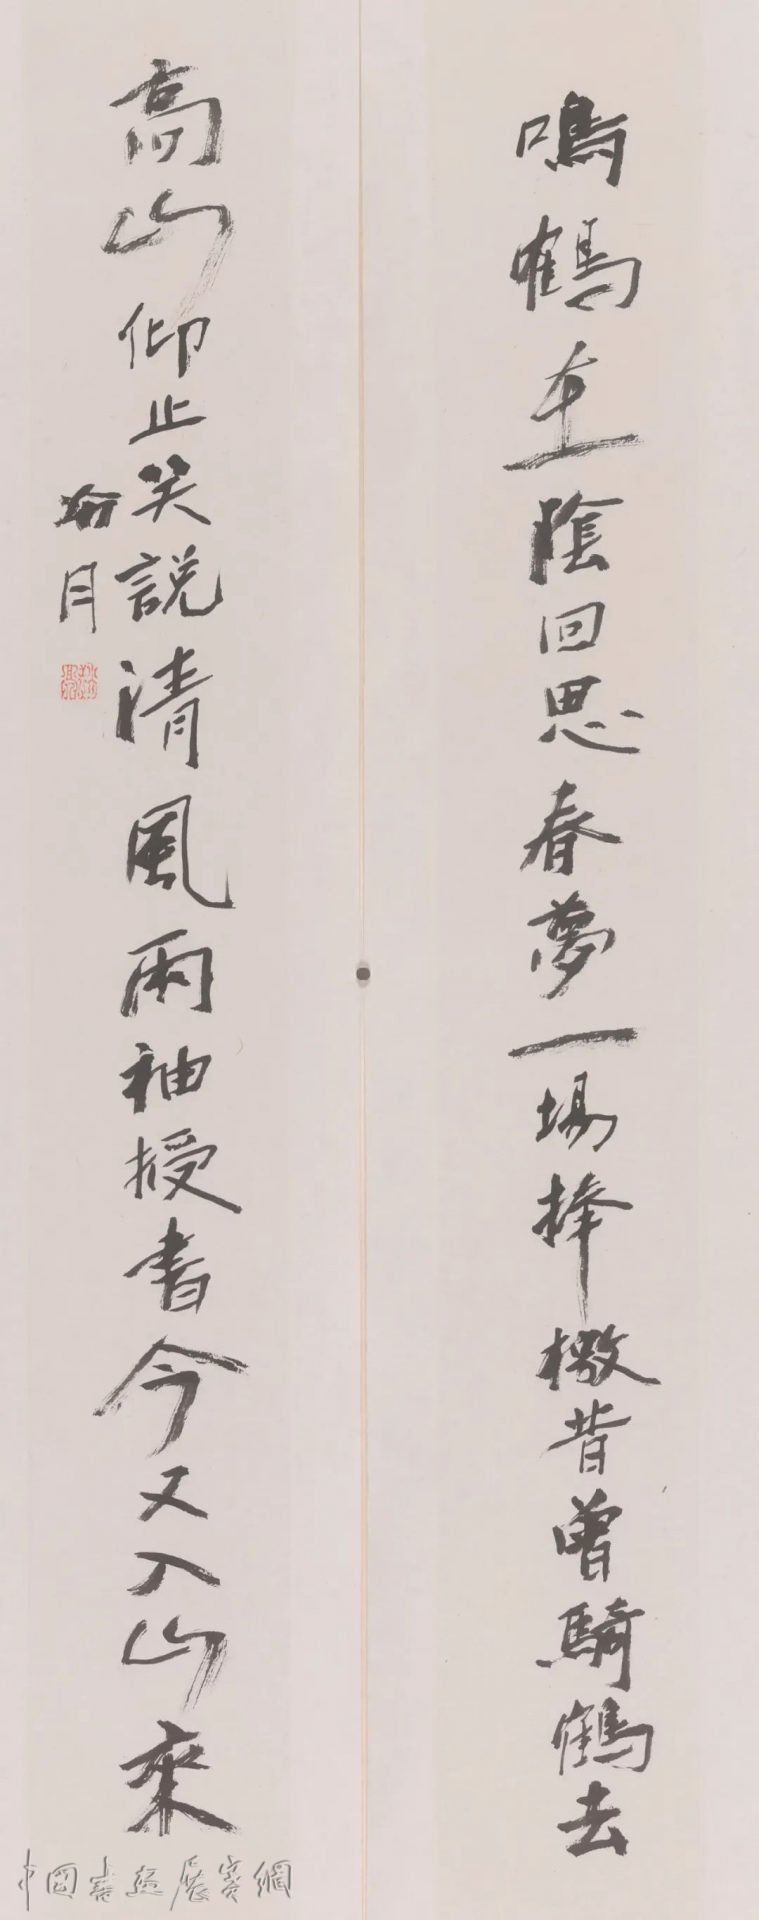 鳴鶴在陰回思春夢一場捧檄昔曾騎鶴去
高山仰止笑說清風兩袖授書今又入山來
月
中國書畫展賽網